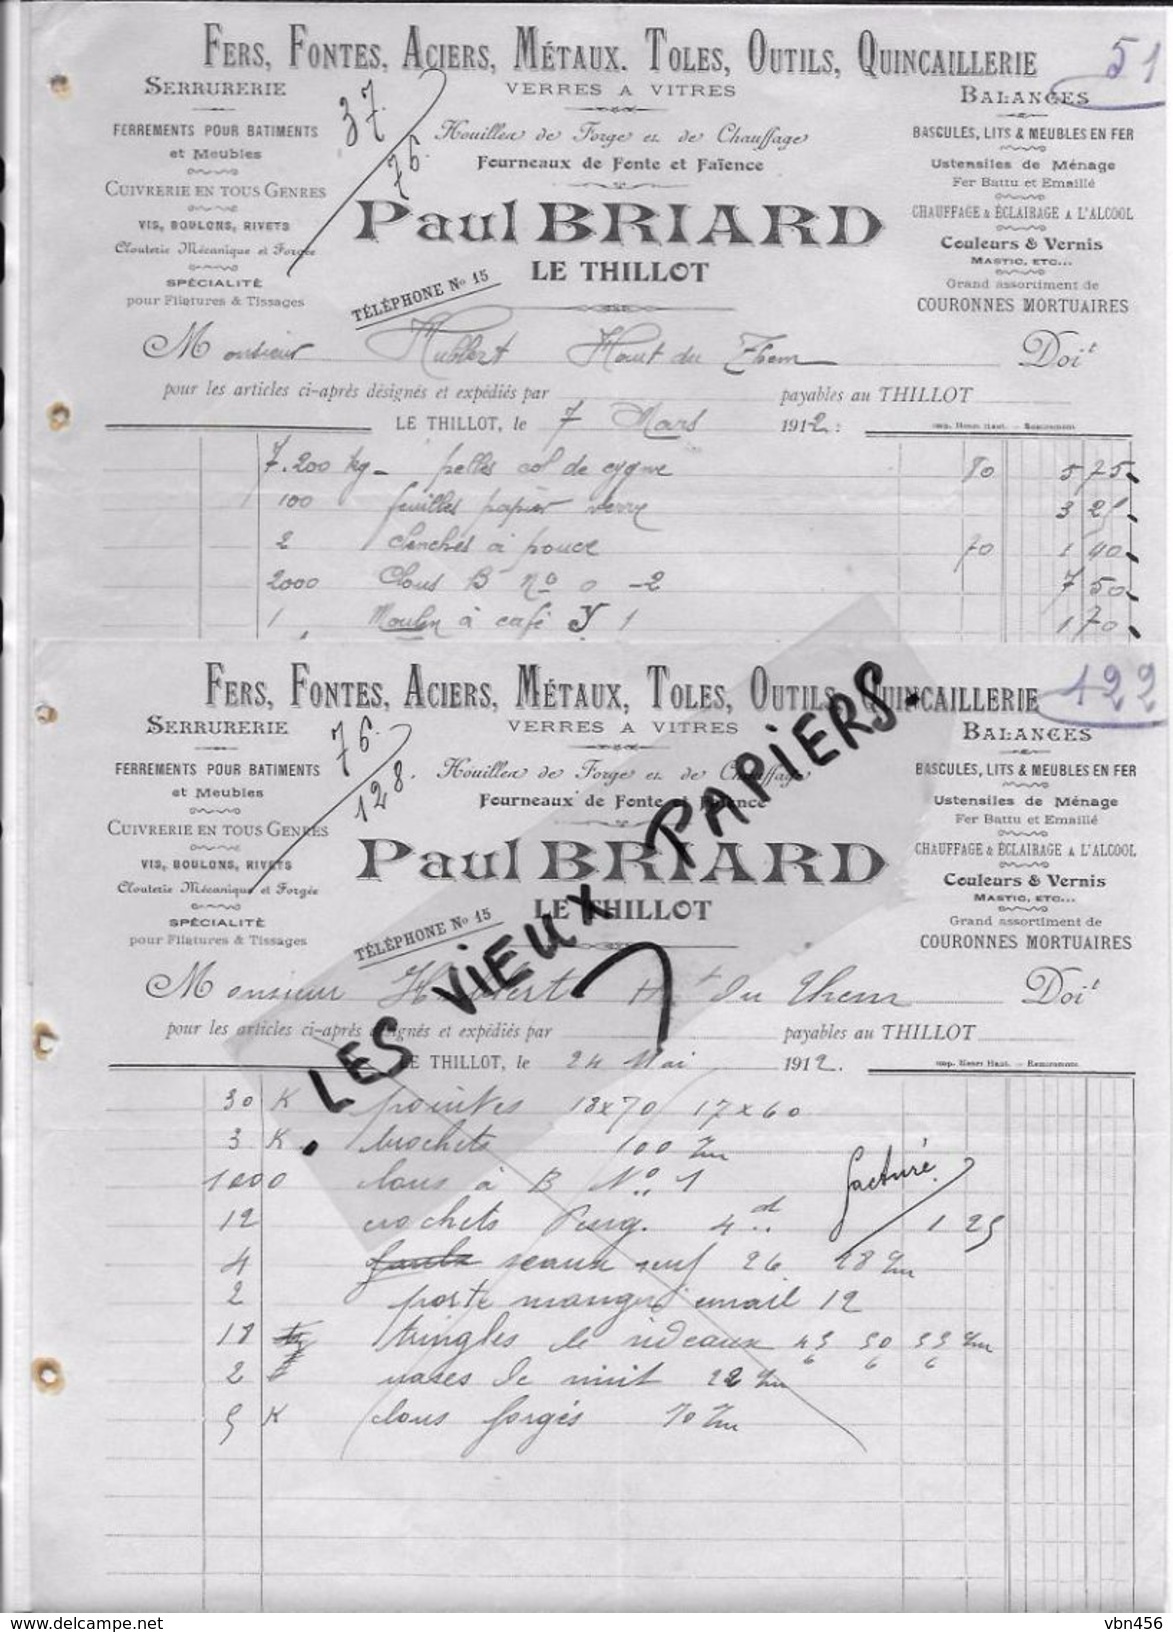 FERS, FONTES, ACIERS, MÉTAUX. TOLES, OUTILS, QUINCAILLERIE
51
SERRURERIE
VERRES A VITRES
BALANCES
FERREMENTS POUR BATIMENTS
et Meubles
37
76.
Houilles de Forge et de Chauffage
Fourneaux de Fonte et Faïence
BASCULES, LITS & MEUBLES EN FER
Ustensiles de Ménage
Fer Battu et Emaillé
CUIVRERIE EN TOUS GENRES
VIS, BOULONS, RIVETS
Clouterie Mécanique et Forgée
Paul BRIARD
LE THILLOT
CHAUFFAGE & ÉCLAIRAGE A L'ALCOOL
Couleurs & Vernis
MASTIC, ETC...
SPÉCIALITÉ
pour Filatures & Tissages
TÉLÉPHONE No 15
Grand assortiment de
COURONNES MORTUAIRES
Monsieur Haut du Them Doit
pour les articles ci-après désignés et expédiés par payables au THILLOT
LE THILLOT, le 7 Mars 1912.
Imp. Henri Haut. - Remiremont
7.200 kg pelles col de cygne 80 5 75
100 feuilles papier verre 3 25
2 clenches à pouce 70 1 40
2000 Clous B No 0 - 2 7 50
1 Moulin à café 1 1 70
FERS, FONTES, ACIERS, MÉTAUX, TOLES, OUTILS, QUINCAILLERIE
122
SERRURERIE
VERRES A VITRES
BALANCES
FERREMENTS POUR BATIMENTS
et Meubles
76.
128.
Houilles de Forge et de Chauffage
Fourneaux de Fonte et Faïence
BASCULES, LITS & MEUBLES EN FER
Ustensiles de Ménage
Fer Battu et Emaillé
CUIVRERIE EN TOUS GENRES
VIS, BOULONS, RIVETS
Clouterie Mécanique et Forgée
Paul BRIARD
LE THILLOT
CHAUFFAGE & ÉCLAIRAGE A L'ALCOOL
Couleurs & Vernis
MASTIC, ETC...
SPÉCIALITÉ
pour Filatures & Tissages
TÉLÉPHONE No 15
Grand assortiment de
COURONNES MORTUAIRES
LES VIEUX PAPIERS.
Monsieur Ht du Them Doit
pour les articles ci-après désignés et expédiés par payables au THILLOT
LE THILLOT, le 24 Mai 1912.
Imp. Henri Haut. - Remiremont
30 K pointes 18x70 / 17x60
3 K brochets 100
1000 clous à B No 1
facturé
12 crochets 4 1 25
4 seaux 26 28
2 porte manger émail 12
18 tringles de rideaux 45 50 55
6 6 6
2 vases de nuit 22
5 K clous forgés 70
Delcampe.net
vbn456